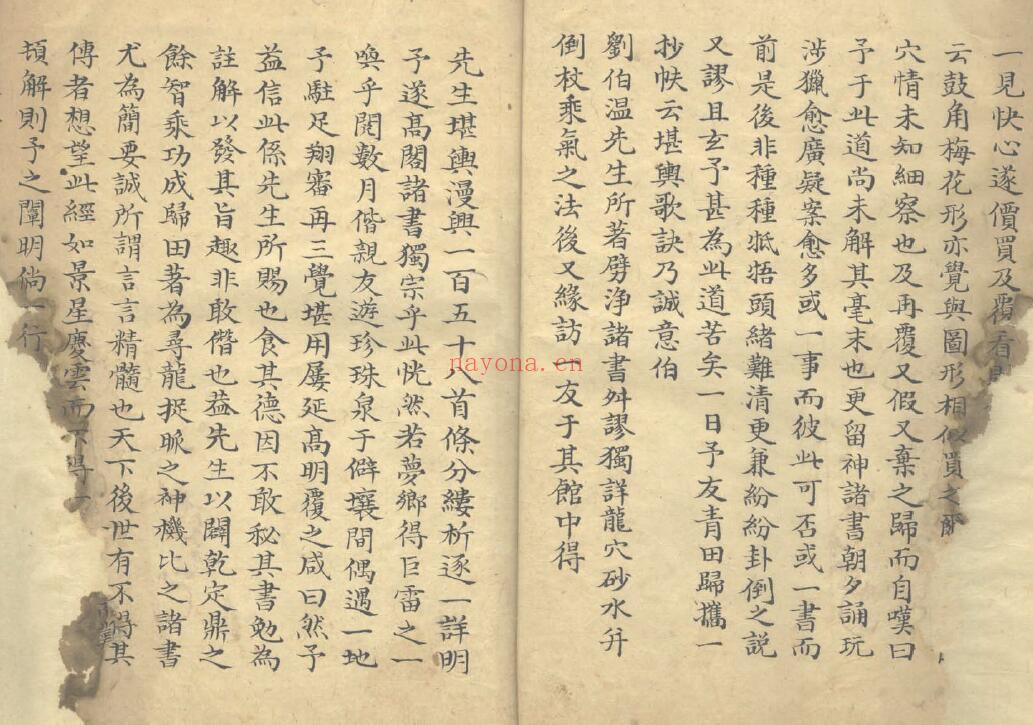 一見快心遂價買及覆看
云鼓角梅花形亦覺與圖形相似買之
穴情未知細察也及再覆又假又棄之歸而自嘆曰
予于此道尚未解其毫末也更留神諸書朝夕誦玩
涉獵愈廣疑案愈多或一事而彼此可否或一書而
前是後非種種牴牾頭緒難清更兼紛紛卦倒之説
又謬且玄予甚為此道苦矣一日予友青田歸攜一
抄帙云堪輿歌訣乃誠意伯
劉伯温先生所著劈浄諸書舛謬獨詳龍穴砂水幷
倒杖乘氣之法後又緣訪一友于其館中得
先生堪輿漫興一百五十八首條分縷析逐一詳明
予遂髙閣諸書獨宗乎此恍然若夢鄉得巨雷之一
喚乎閱數月偕親友遊珍珠泉于僻壤間偶遇一地
予駐足翔審再三覺堪用屢延髙明覆之咸曰然予
益信此係先生所賜也食其德因不敢秘其書勉為
註解以發其旨趣非敢僭也葢先生以闢乾定鼎之
餘智乘功成歸田著為尋龍捉脈之神機比之諸書
尤為簡要誠所謂言言精髓也天下後世有不得其
傳者想望此經如景星慶雲而不得一
頓解則予之闡明倘一行
nayona.cn